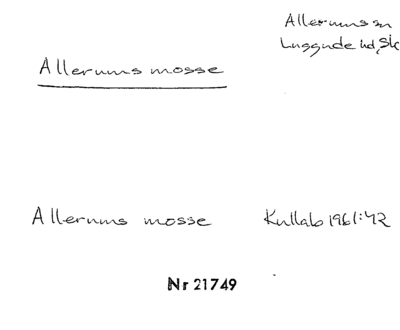 Allerums sn
Luggude hd, Sk
Allerums mosse
Allerums mosse Kullab 1961:42
Nr 21749